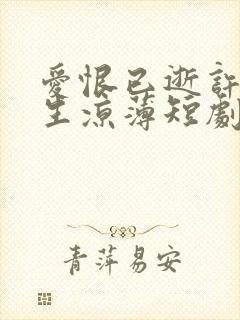 愛恨已逝許
生涼薄短劇
青萍易安